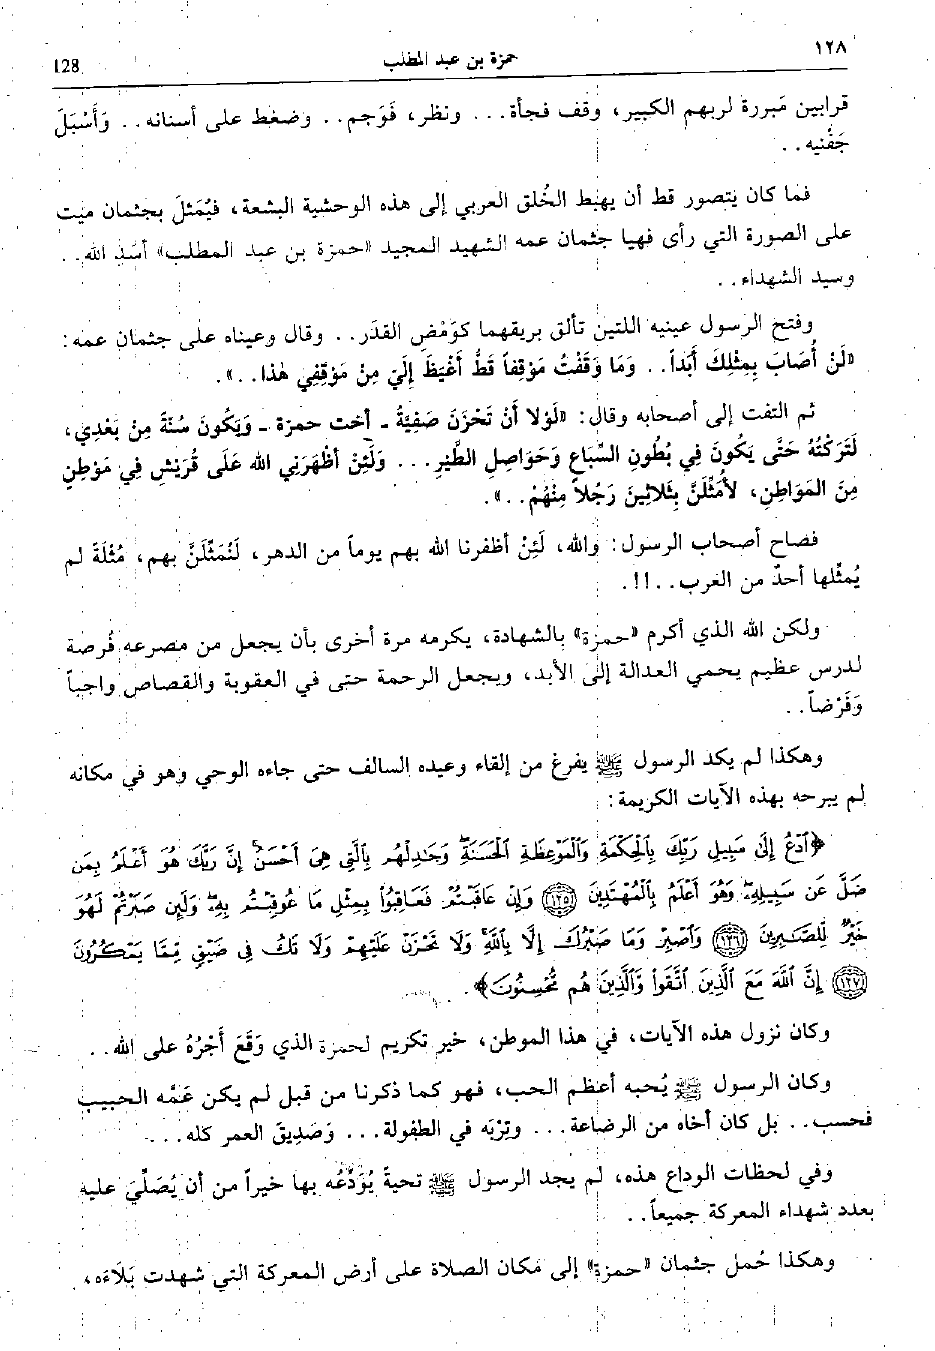 ١٢٨
حمزة بن عبد المطلب
128
قرابين مَبررة لربهم الكبير، وقف فجأة... ونظر، فَوَجم.. وضغط على أسنانه.. وَأَسْبَلَ
جَفْنيه..
فما كان يتصور قط أن يهبط الخُلق العربي إلى هذه الوحشية البشعة، فيُمَثلَ بجثمان ميت
على الصورة التي رأى فهيا جثمان عمه الشهيد المجيد «حمزة بن عبد المطلب» أسَد الله..
وسيد الشهداء..
وفتح الرسول عينيه اللتين تألق بريقهما كوَمْضِ القدَر.. وقال وعيناه على جثمان عمه:
«لَنْ أُصَابَ بِمِثْلِكَ أَبَداً.. وَمَا وَقَفْتُ مَوْقِفاً قَطُّ أَغْيَظَ إِلَيّ مِنْ مَوْقِفِي هٰذا..».
ثم التفت إلى أصحابه وقال: «لَوْلا أَنْ تَحْزَنَ صَفِيَّةُ ـ أخت حمزة ـ وَيَكُونَ سُنَّةً مِنْ بَعْدِي،
لَتَرَكْتُهُ حَتَّى يَكُونَ فِي بُطُونِ السِّبَاعِ وَحَوَاصِلِ الطَّيْرِ... وَلَئِنْ أَظْهَرَنِي الله عَلَى قُرَيْشٍ فِي مَوْطِنٍ
مِنَ المَوَاطِنِ، لأُمَثِّلَنَّ بِثَلاثِينَ رَجُلاً مِنْهُمْ..».
فصاح أصحاب الرسول: والله، لَئِنْ أظفرنا الله بهم يوماً من الدهر، لَنُمَثِّلَنَّ بهم، مُثْلَةً لم
يُمثِّلها أحدٌ من العرب..!!.
ولكن الله الذي أكرم «حمزة» بالشهادة، يكرمه مرة أخرى بأن يجعل من مصرعه فُرصة
لدرس عظيم يحمي العدالة إلى الأبد، ويجعل الرحمة حتى في العقوبة والقصاص واجباً
وَفَرْضاً..
وهكذا لم يكد الرسول ﷺ يفرغ من إلقاء وعيده السالف حتى جاءه الوحي وهو في مكانه
لم يبرحه بهذه الآيات الكريمة:
﴿ٱدْعُ إِلَىٰ سَبِيلِ رَبِّكَ بِٱلْحِكْمَةِ وَٱلْمَوْعِظَةِ ٱلْحَسَنَةِ وَجَٰدِلْهُم بِٱلَّتِى هِىَ أَحْسَنُ إِنَّ رَبَّكَ هُوَ أَعْلَمُ بِمَن
ضَلَّ عَن سَبِيلِهِۦ وَهُوَ أَعْلَمُ بِٱلْمُهْتَدِينَ ١٢٥ وَإِنْ عَاقَبْتُمْ فَعَاقِبُوا۟ بِمِثْلِ مَا عُوقِبْتُم بِهِۦ وَلَئِن صَبَرْتُمْ لَهُوَ
خَيْرٌ لِّلصَّٰبِرِينَ ١٢٦ وَٱصْبِرْ وَمَا صَبْرُكَ إِلَّا بِٱللَّهِ وَلَا تَحْزَنْ عَلَيْهِمْ وَلَا تَكُ فِى ضَيْقٍ مِّمَّا يَمْكُرُونَ
١٢٧ إِنَّ ٱللَّهَ مَعَ ٱلَّذِينَ ٱتَّقَوا۟ وَّٱلَّذِينَ هُم مُّحْسِنُونَ﴾.
وكان نزول هذه الآيات، في هذا الموطن، خير تكريم لحمزة الذي وَقَعَ أَجْرُهُ على الله..
وكان الرسول ﷺ يُحبه أعظم الحب، فهو كما ذكرنا من قبل لم يكن عَمَّه الحبيب
فحسب.. بل كان أخاه من الرضاعة... وتِرْبَه في الطفولة... وَصَدِيقَ العمر كله...
وفي لحظات الوداع هذه، لم يجد الرسول ﷺ تحيةً يُوَدِّعُه بها خيراً من أن يُصَلِّيَ عليه
بعدد شهداء المعركة جميعاً..
وهكذا حُمل جثمان «حمزة» إلى مكان الصلاة على أرض المعركة التي شهدت بَلَاءَه،